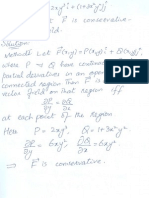 2xy³ i + (1+3x²y²) j
F is conservative
field.
Solution
Let F(x,y) = P(x,y) i + Q(x,y)
where P & Q have continuous
partial derivatives in an open
connected region then is
vector field on that region iff
∂P/∂y = ∂Q/∂x
at each point of the region
Here P = 2xy³, Q = 1+3x²y²
∂P/∂y = 6xy², ∂Q/∂x = 6xy²
⇒ F is conservative.